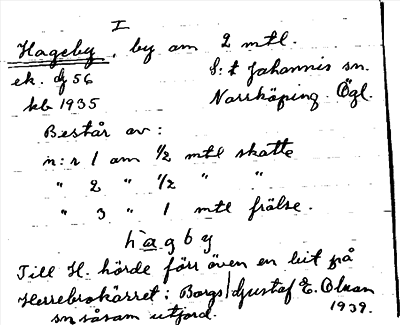 I
Hageby, by om 2 mtl.
ek. dj 56 S:t Johannis sn.
kb 1935 Norrköping. Ögl.
Består av:
n:r 1 om 1/2 mtl skatte
" 2 " 1/2 " "
" 3 " 1 mtl frälse.
hagby
Till H. hörde förr även en bit på
Herrebrokärret i Borgs Gustaf E. Olsson
sn såsom utjord. 1939.